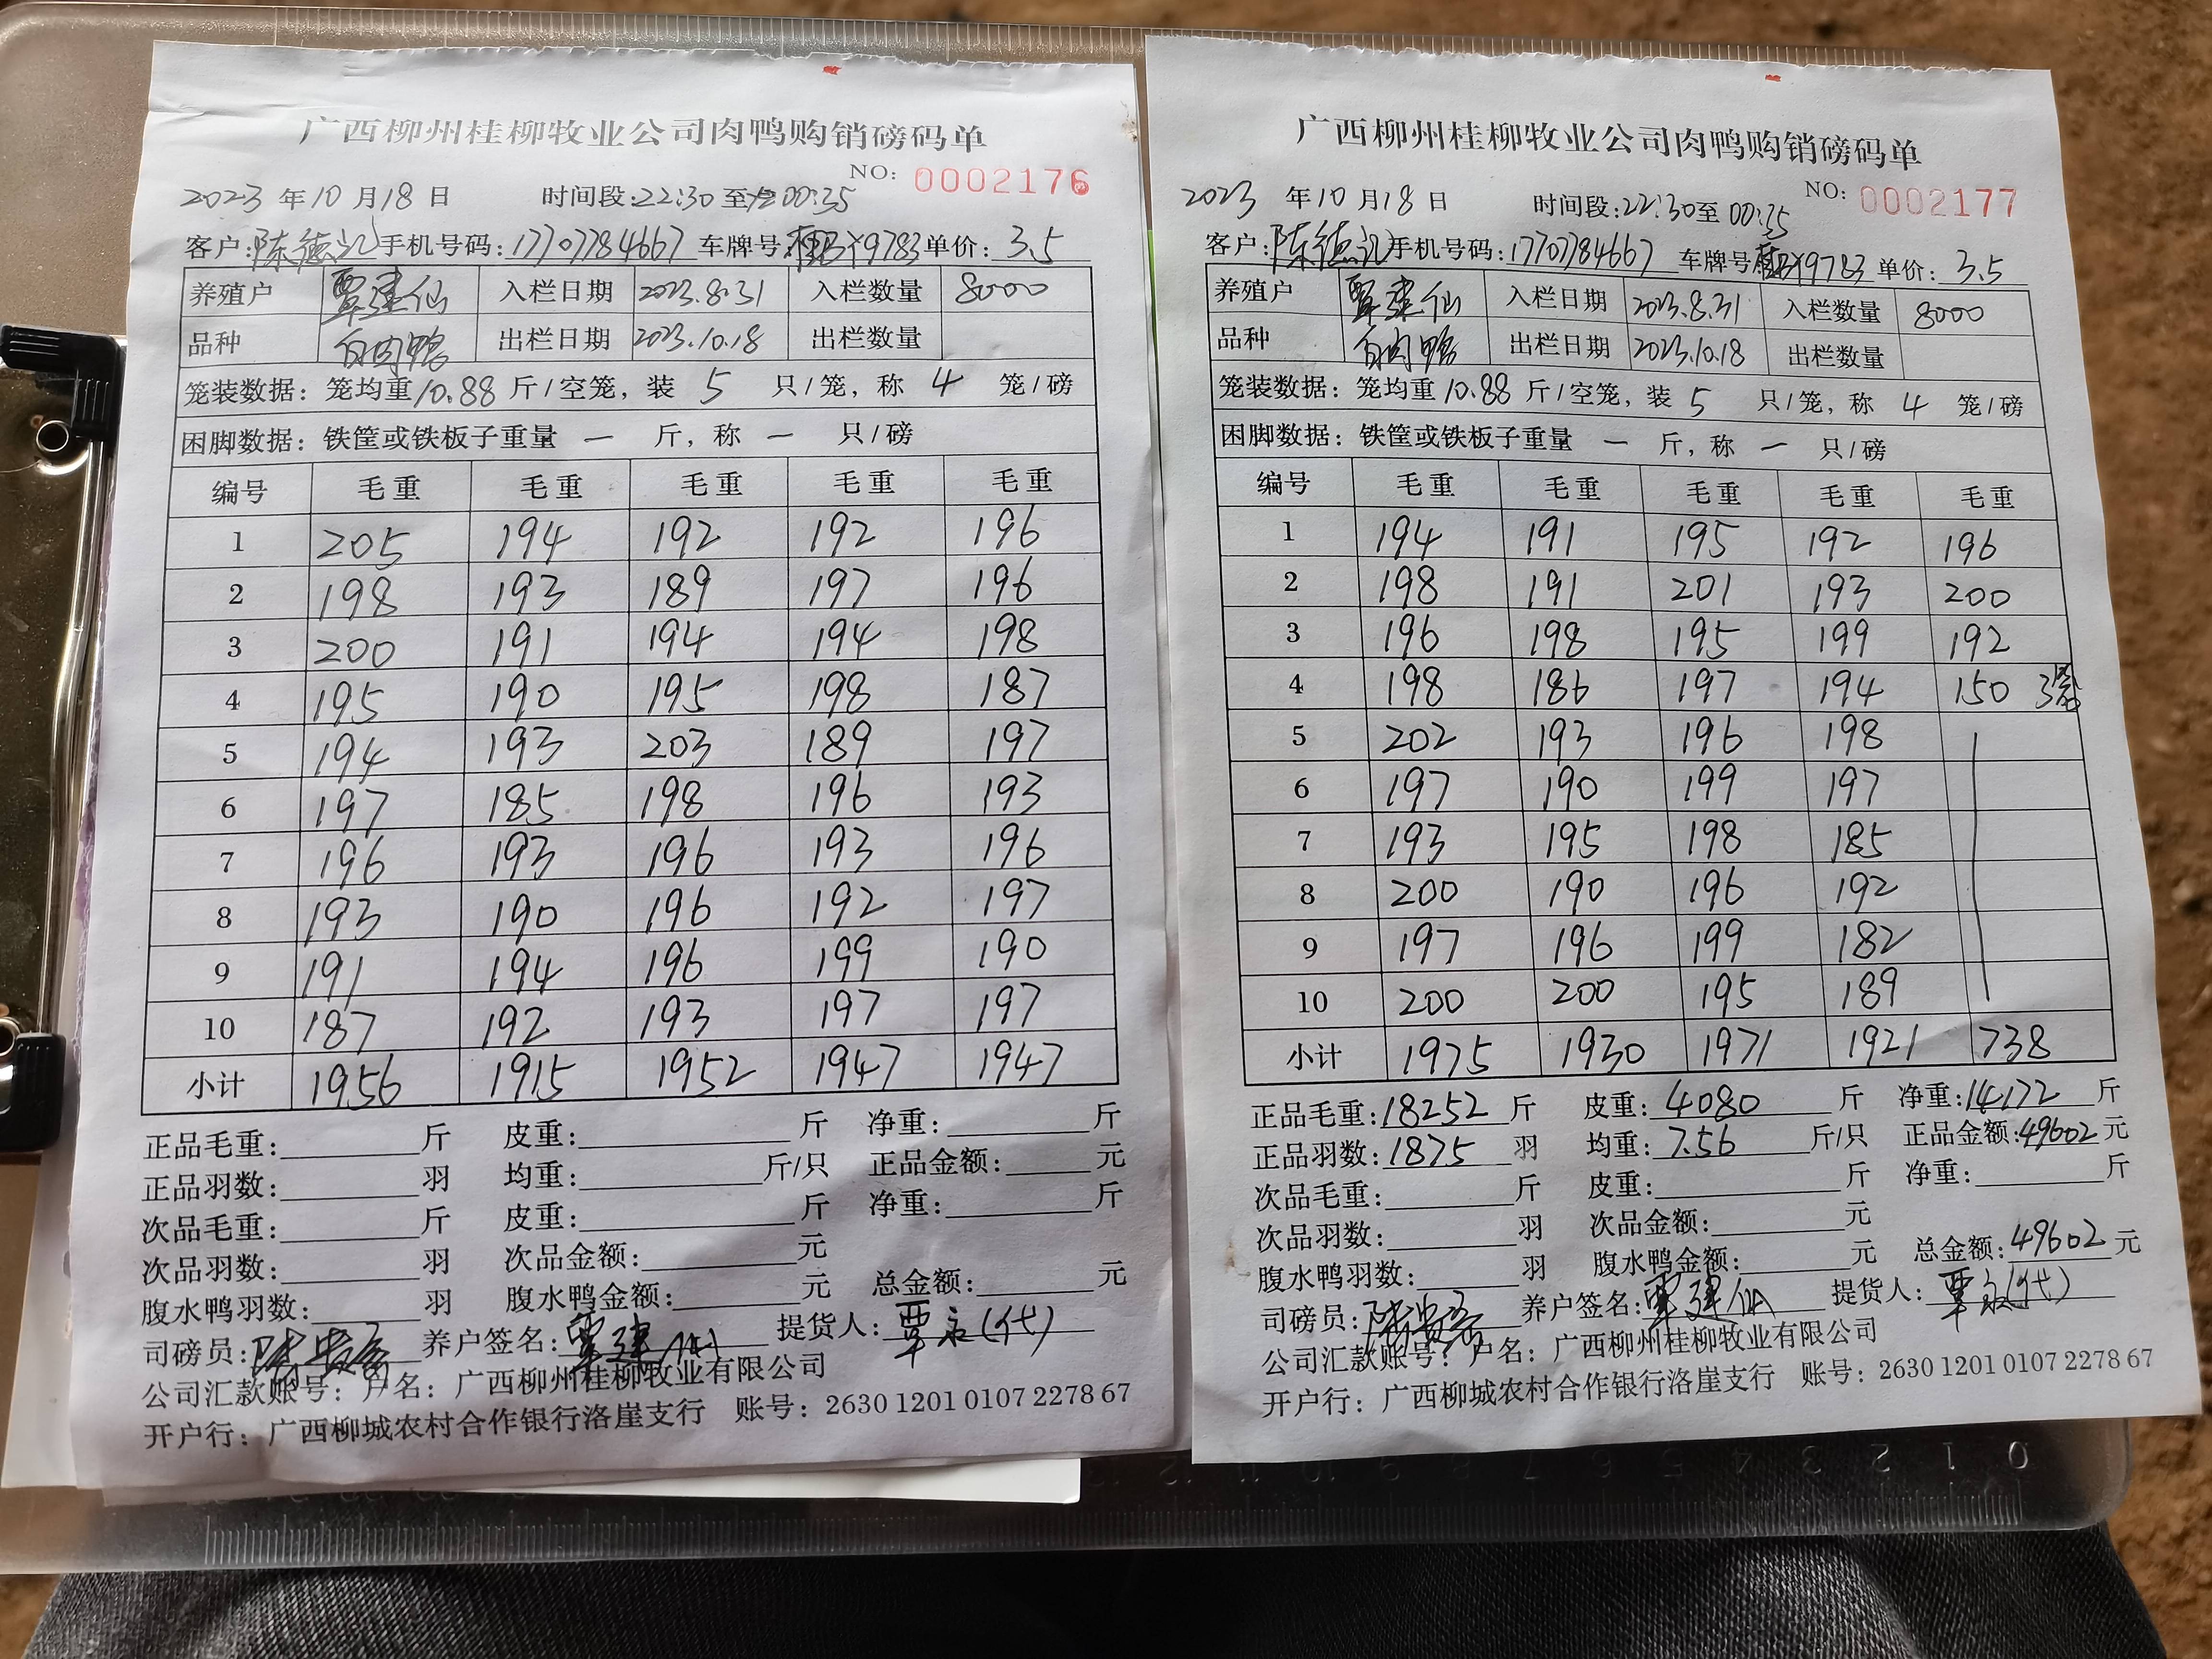 广西柳州桂柳牧业公司肉鸭购销磅码单
NO: 0002176
2023年10月18日 时间段:22:30至00:35
客户:陈德记 手机号码:17707784667 车牌号:Y9783 单价:3.5
养殖户 覃建仙 入栏日期 2023.8.31 入栏数量 8000
品种 白肉鸭 出栏日期 2023.10.18 出栏数量
笼装数据：笼均重10.88斤/空笼，装 5 只/笼，称 4 笼/磅
困脚数据：铁筐或铁板子重量 一 斤，称 一 只/磅
编号 毛重 毛重 毛重 毛重 毛重
1 205 194 192 192 196
2 198 193 189 197 196
3 200 191 194 194 198
4 195 190 195 198 187
5 194 193 203 189 197
6 197 185 198 196 193
7 196 193 196 193 196
8 193 190 196 192 197
9 191 194 196 199 190
10 187 192 193 197 197
小计 1956 1915 1952 1947 1947
正品毛重：斤 皮重：斤 净重：斤
正品羽数：羽 均重：斤/只 正品金额：元
次品毛重：斤 皮重：斤 净重：斤
次品羽数：羽 次品金额：元
腹水鸭羽数：羽 腹水鸭金额：元 总金额：元
司磅员： 养户签名：覃建仙 提货人：覃永(代)
公司汇款账号：户名：广西柳州桂柳牧业有限公司
开户行：广西柳城农村合作银行洛崖支行 账号：2630 1201 0107 2278 67
广西柳州桂柳牧业公司肉鸭购销磅码单
NO: 0002177
2023年10月18日 时间段:22:30至00:35
客户:陈德记 手机号码:17707784667 车牌号Y9783 单价:3.5
养殖户 覃建仙 入栏日期 2023.8.31 入栏数量 8000
品种 白肉鸭 出栏日期 2023.10.18 出栏数量
笼装数据：笼均重10.88斤/空笼，装 5 只/笼，称 4 笼/磅
困脚数据：铁筐或铁板子重量 一 斤，称 一 只/磅
编号 毛重 毛重 毛重 毛重 毛重
1 194 191 195 192 196
2 198 191 201 193 200
3 196 198 195 199 192
4 198 186 197 194 150 3笼
5 202 193 196 198
6 197 190 199 197
7 193 195 198 185
8 200 190 196 192
9 197 196 199 182
10 200 200 195 189
小计 1975 1930 1971 1921 738
正品毛重：18252斤 皮重：4080斤 净重：14172斤
正品羽数：1875羽 均重：7.56斤/只 正品金额：49602元
次品毛重：斤 皮重：斤 净重：斤
次品羽数：羽 次品金额：元
腹水鸭羽数：羽 腹水鸭金额：元 总金额：49602元
司磅员： 养户签名：覃建仙 提货人：覃永(代)
公司汇款账号：户名：广西柳州桂柳牧业有限公司
开户行：广西柳城农村合作银行洛崖支行 账号：2630 1201 0107 2278 67
12 11 10 9 8 7 6 5 4 3 2 1 0